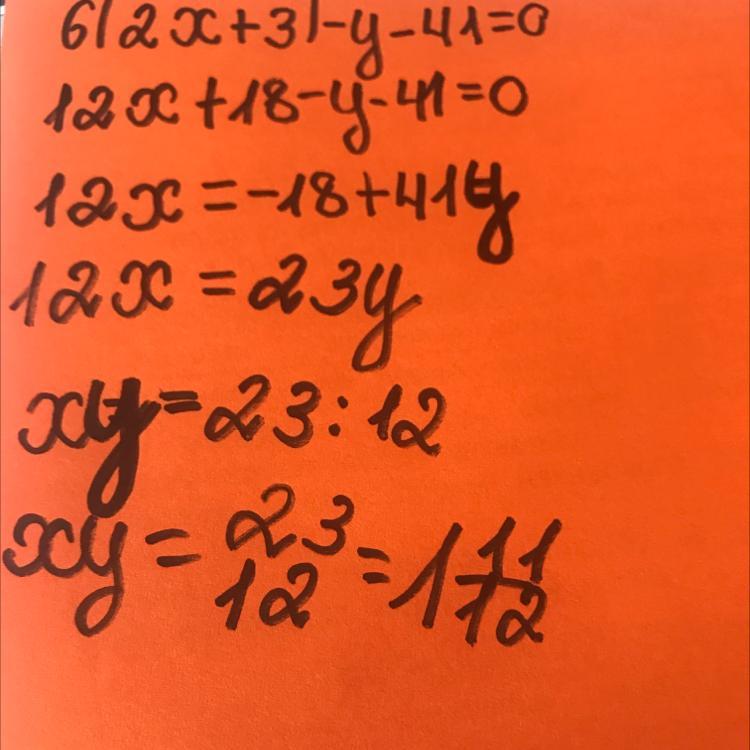 6(2x+3)-y-41=0
12x+18-y-41=0
12x=-18+41y
12x=23y
xy=23:12
xy=23/12=1 11/12